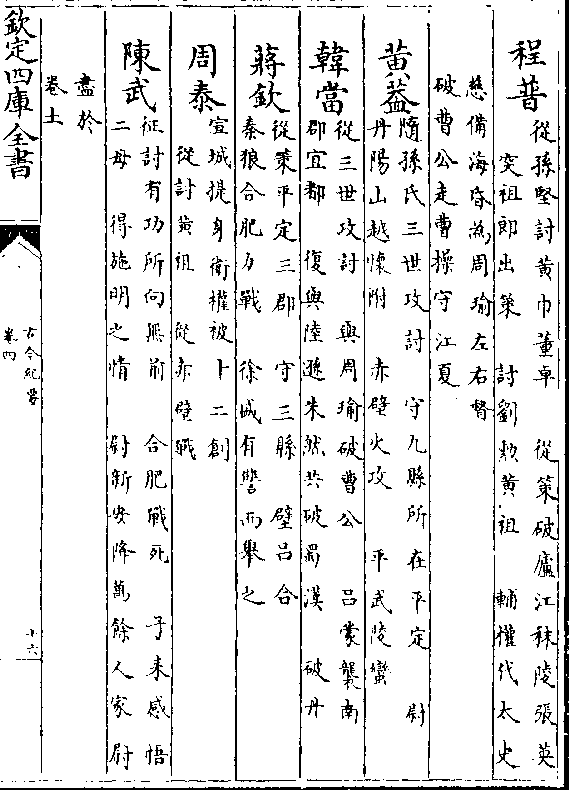 程普 從孫堅討黄巾董卓 從策破廬江秣陵張英
突祖郎出策 討劉勲黄祖 輔權代太史
慈備海昏為周瑜左右督
破曹公走曹操守江夏
黄葢 隨孫氏三世攻討 守九縣所在平定 尉
丹陽山越懷附 赤壁火攻 平武陵蠻
韓當 從三世攻討 與周瑜破曹公 吕蒙襲南
郡宜都 復與陸遜朱然共破蜀漢 破丹
蔣欽 從策平定三郡 守三縣 壁吕合
秦狼合肥力戰 徐盛有讐而舉之
周泰 宣城提身衛權被卜二創
從討黄祖 從赤壁戰
陳武 征討有功所向無前 合肥戰死 子来感悟
二母 得施明之情 尉新安降萬餘人家尉
盡於
卷土
欽定四庫全書
古今紀要
卷四
十六